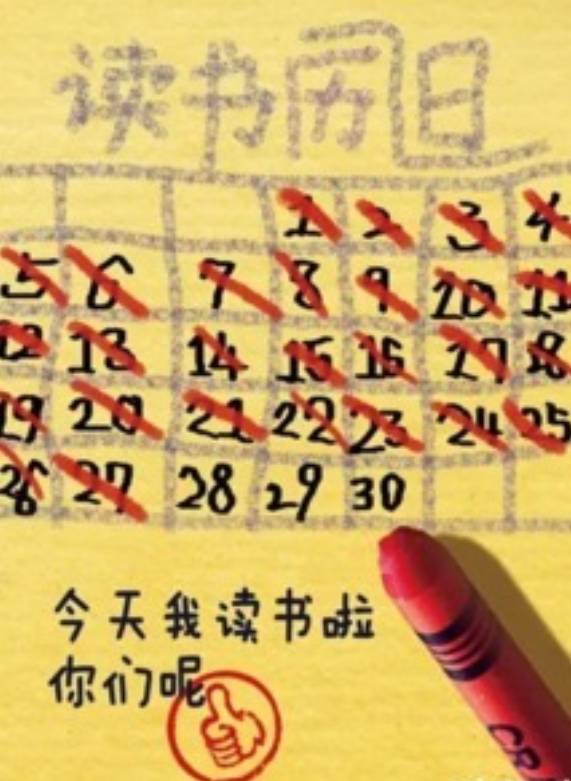 读书历日
1 2 3 4
5 6 7 8 9 10 11
12 13 14 15 16 17 18
19 20 21 22 23 24 25
26 27 28 29 30
今天我读书啦
你们呢